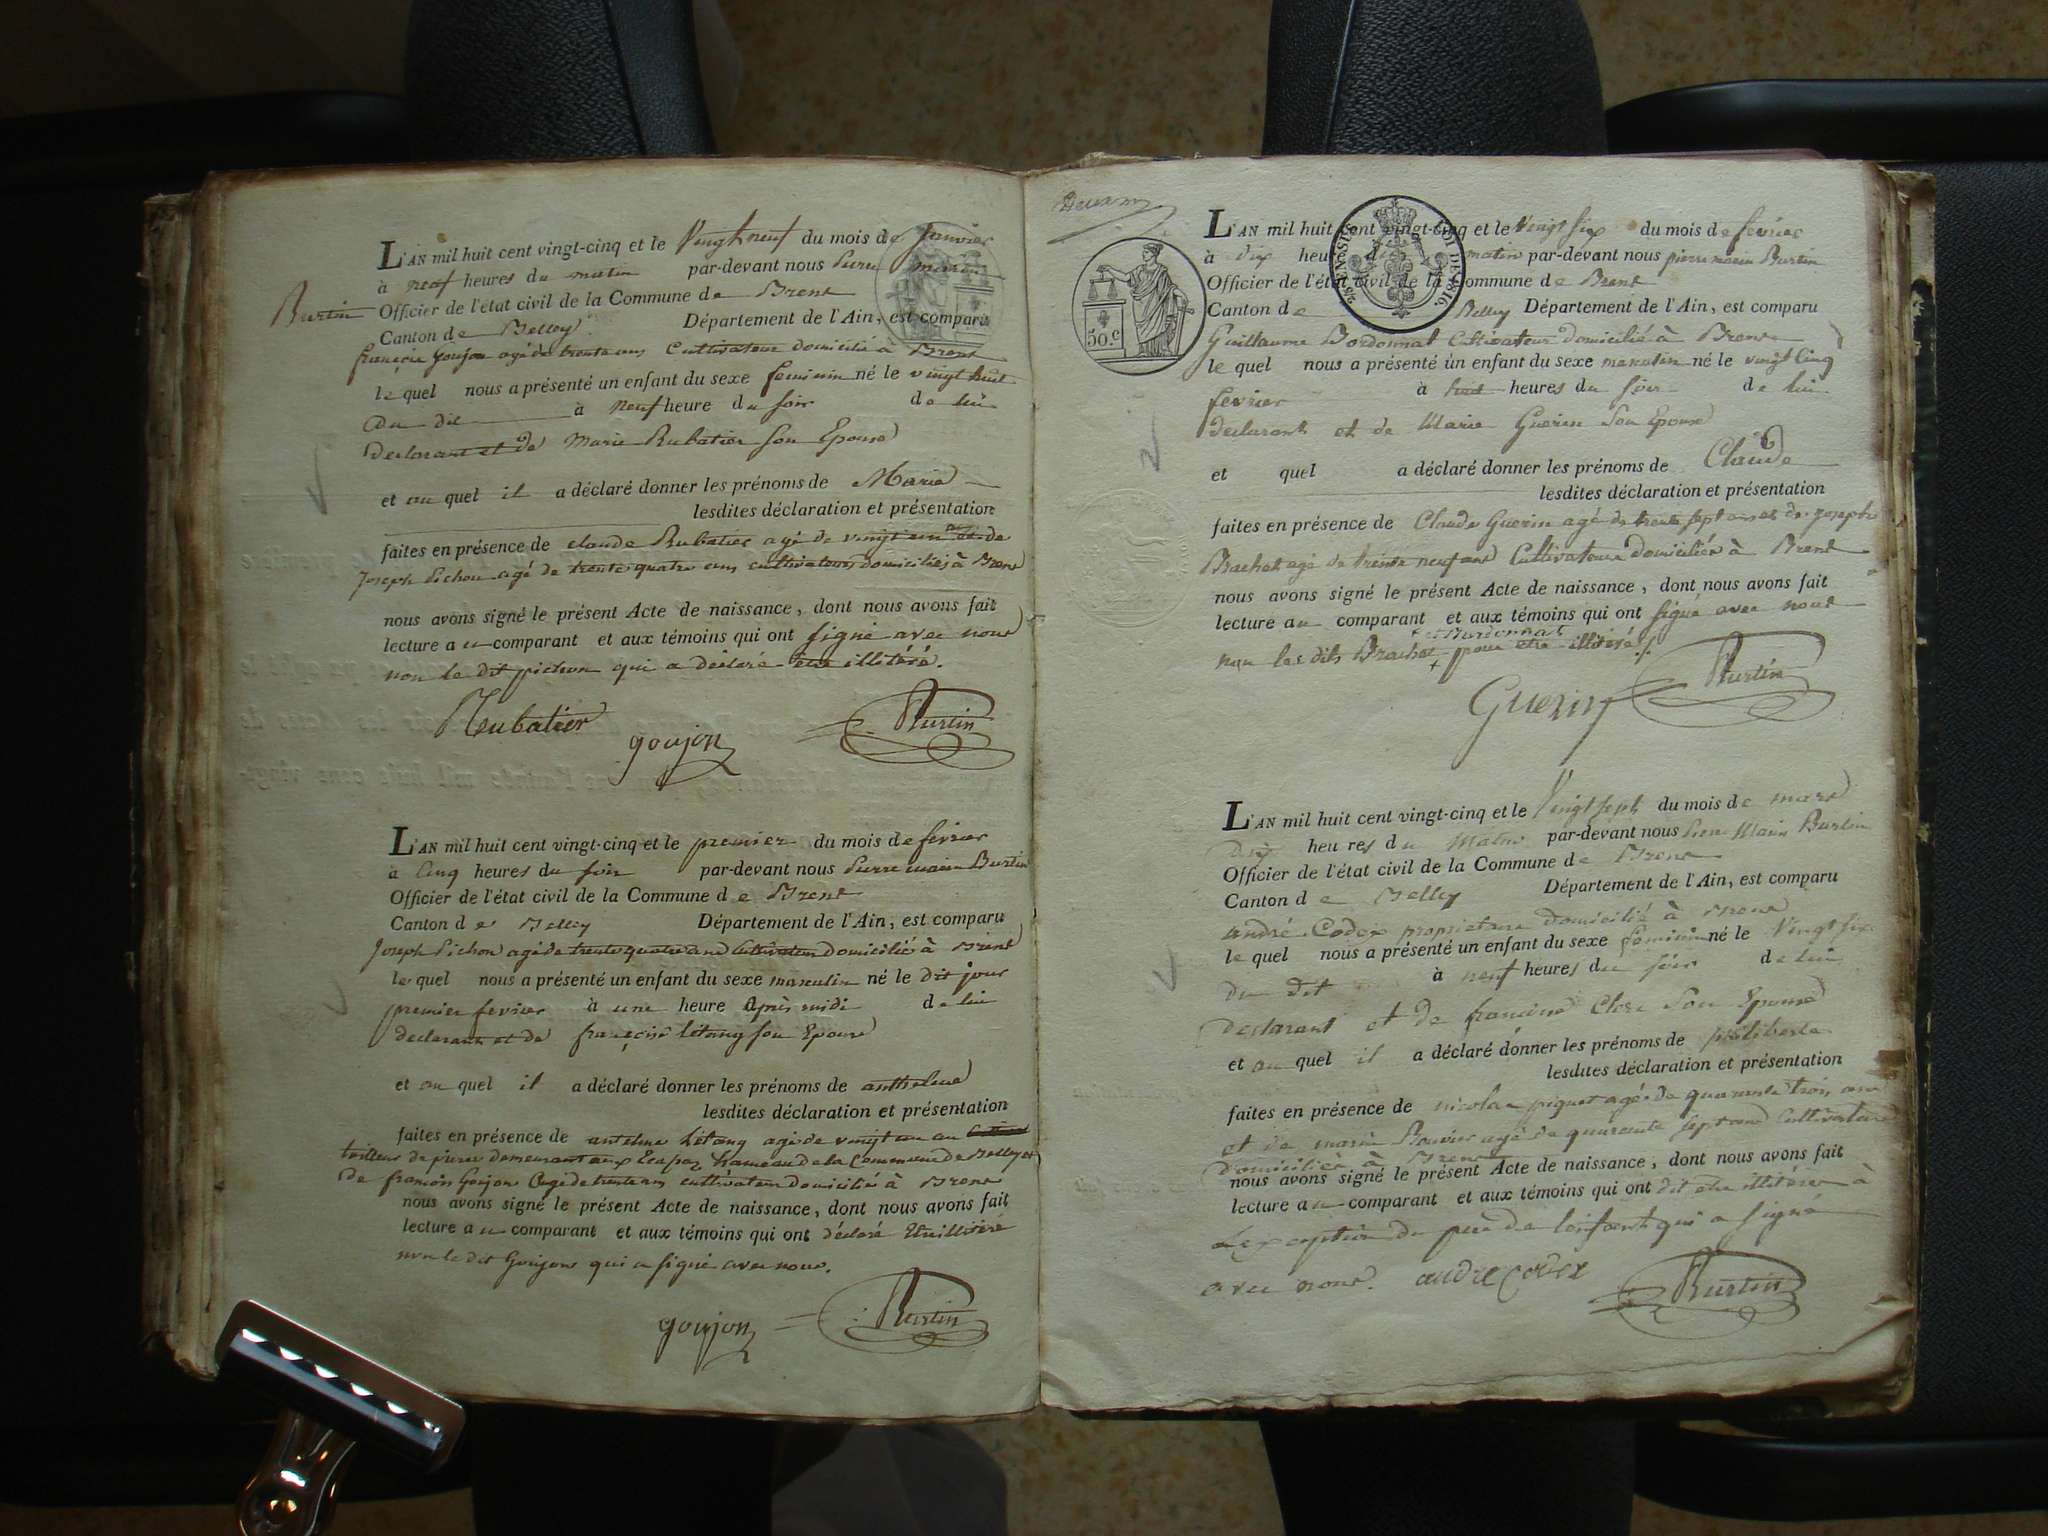 L'AN mil huit cent vingt-cinq et le Vingt neuf du mois de Janvier
à neuf heures du matin par-devant nous Pierre marin
Burtin Officier de l'état civil de la Commune de Brens
Canton de Belley Département de l'Ain, est comparu
françois Goujon agé de trente ans Cultivateur domicilié à Brens
le quel nous a présenté un enfant du sexe feminin né le vingt huit
du dit à neuf heure du soir de lui
declarant et de Marie Rubatier son Epouse
et au quel il a déclaré donner les prénoms de Marie
lesdites déclaration et présentation
faites en présence de claude Rubatier agé de vingt un ans et de
Joseph Pichon agé de trente quatre ans cultivateurs domiciliés à Brens
nous avons signé le présent Acte de naissance, dont nous avons fait
lecture au comparant et aux témoins qui ont signé avec nous
non le dit pichon qui a déclaré être illitéré.
Rubatier
goujon
Burtin
L'AN mil huit cent vingt-cinq et le premier du mois de fevrier
à Cinq heures du soir par-devant nous Pierre marin Burtin
Officier de l'état civil de la Commune de Brens
Canton de Belley Département de l'Ain, est comparu
Joseph Pichon agé de trente quatre ans Cultivateur domicilié à Brens
le quel nous a présenté un enfant du sexe masculin né le dit jour
premier fevrier à une heure après midi de lui
declarant et de françoise Létang son Epouse
et au quel il a déclaré donner les prénoms de anthelme
lesdites déclaration et présentation
faites en présence de antelme Létang agé de vingt un an
tailleur de pierre demeurant aux Ecassaz hameau de la Commune de Belley et
de françois Goujon agé de trente ans cultivateur domicilié à Brens
nous avons signé le présent Acte de naissance, dont nous avons fait
lecture au comparant et aux témoins qui ont déclaré être illitéré
non le dit Goujon qui a signé avec nous.
goujon
Burtin
Deuxm
50.c
L'AN mil huit cent vingt-cinq et le Vingt six du mois de fevrier
à dix heures du matin par-devant nous pierre marin Burtin
Officier de l'état civil de la Commune de Brens
Canton de Belley Département de l'Ain, est comparu
Guillaume Bordonnat Cultivateur domicilié à Brens
le quel nous a présenté un enfant du sexe masculin né le vingt Cinq
fevrier à huit heures du soir de lui
declarant et de Marie Guerin son Epouse
et quel a déclaré donner les prénoms de Claude
lesdites déclaration et présentation
faites en présence de Claude Guerin agé de trente sept ans et de Joseph
Brachet agé de trente neuf ans Cultivateurs domiciliés à Brens
nous avons signé le présent Acte de naissance, dont nous avons fait
lecture au comparant et aux témoins qui ont signé avec nous
+ et Bordonnat
non les dits Brachet + pour être illitéré
Guerin
Burtin
L'AN mil huit cent vingt-cinq et le Vingt sept du mois de mars
dix heures du Matin par-devant nous Pierre Marin Burtin
Officier de l'état civil de la Commune de Brens
Canton de Belley Département de l'Ain, est comparu
andré Codex proprietaire domicilié à Brens
le quel nous a présenté un enfant du sexe feminin né le Vingt six
du dit à neuf heures du soir de lui
declarant et de francine Clerc son Epouse
et au quel il a déclaré donner les prénoms de philiberte
lesdites déclaration et présentation
faites en présence de nicolas piquet agé de quarante trois ans
et de marin Bouvier agé de quarante sept ans Cultivateurs
domiciliés à Brens
nous avons signé le présent Acte de naissance, dont nous avons fait
lecture au comparant et aux témoins qui ont dit être illitérés à
Lexception du père de lenfant qui a signé
avec nous. andre codex
Burtin